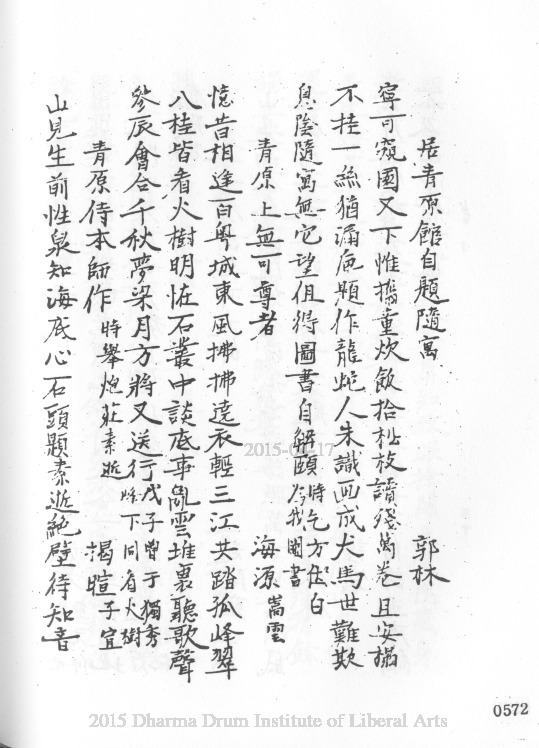 居青原館自題隨寓 郭林
寧可窺園又下帷攜童炊飯拾松放讀殘萬卷且安榻
不挂一絲猶漏卮題作龍蛇人未識画成犬馬世難欺
息陰隨寓無它望但得圖書自解頤 時乞方位白為我圖書
青原上無可尊者 海源 嵩雲
憶昔相逢百粵城東風拂拂遠衣輕三江共踏孤峰翠
八桂皆看火樹明怪石叢中談底事亂雲堆裏聽歌聲
參辰會合千秋夢梁月方將又送行 戊子曾于獨秀峰下同看火樹
青原侍本師作 時舉炮莊素逝 揭暄 子宜
山見生前性泉知海底心石頭題素逝絕壁待知音
0572
2015-04-17
2015 Dharma Drum Institute of Liberal Arts